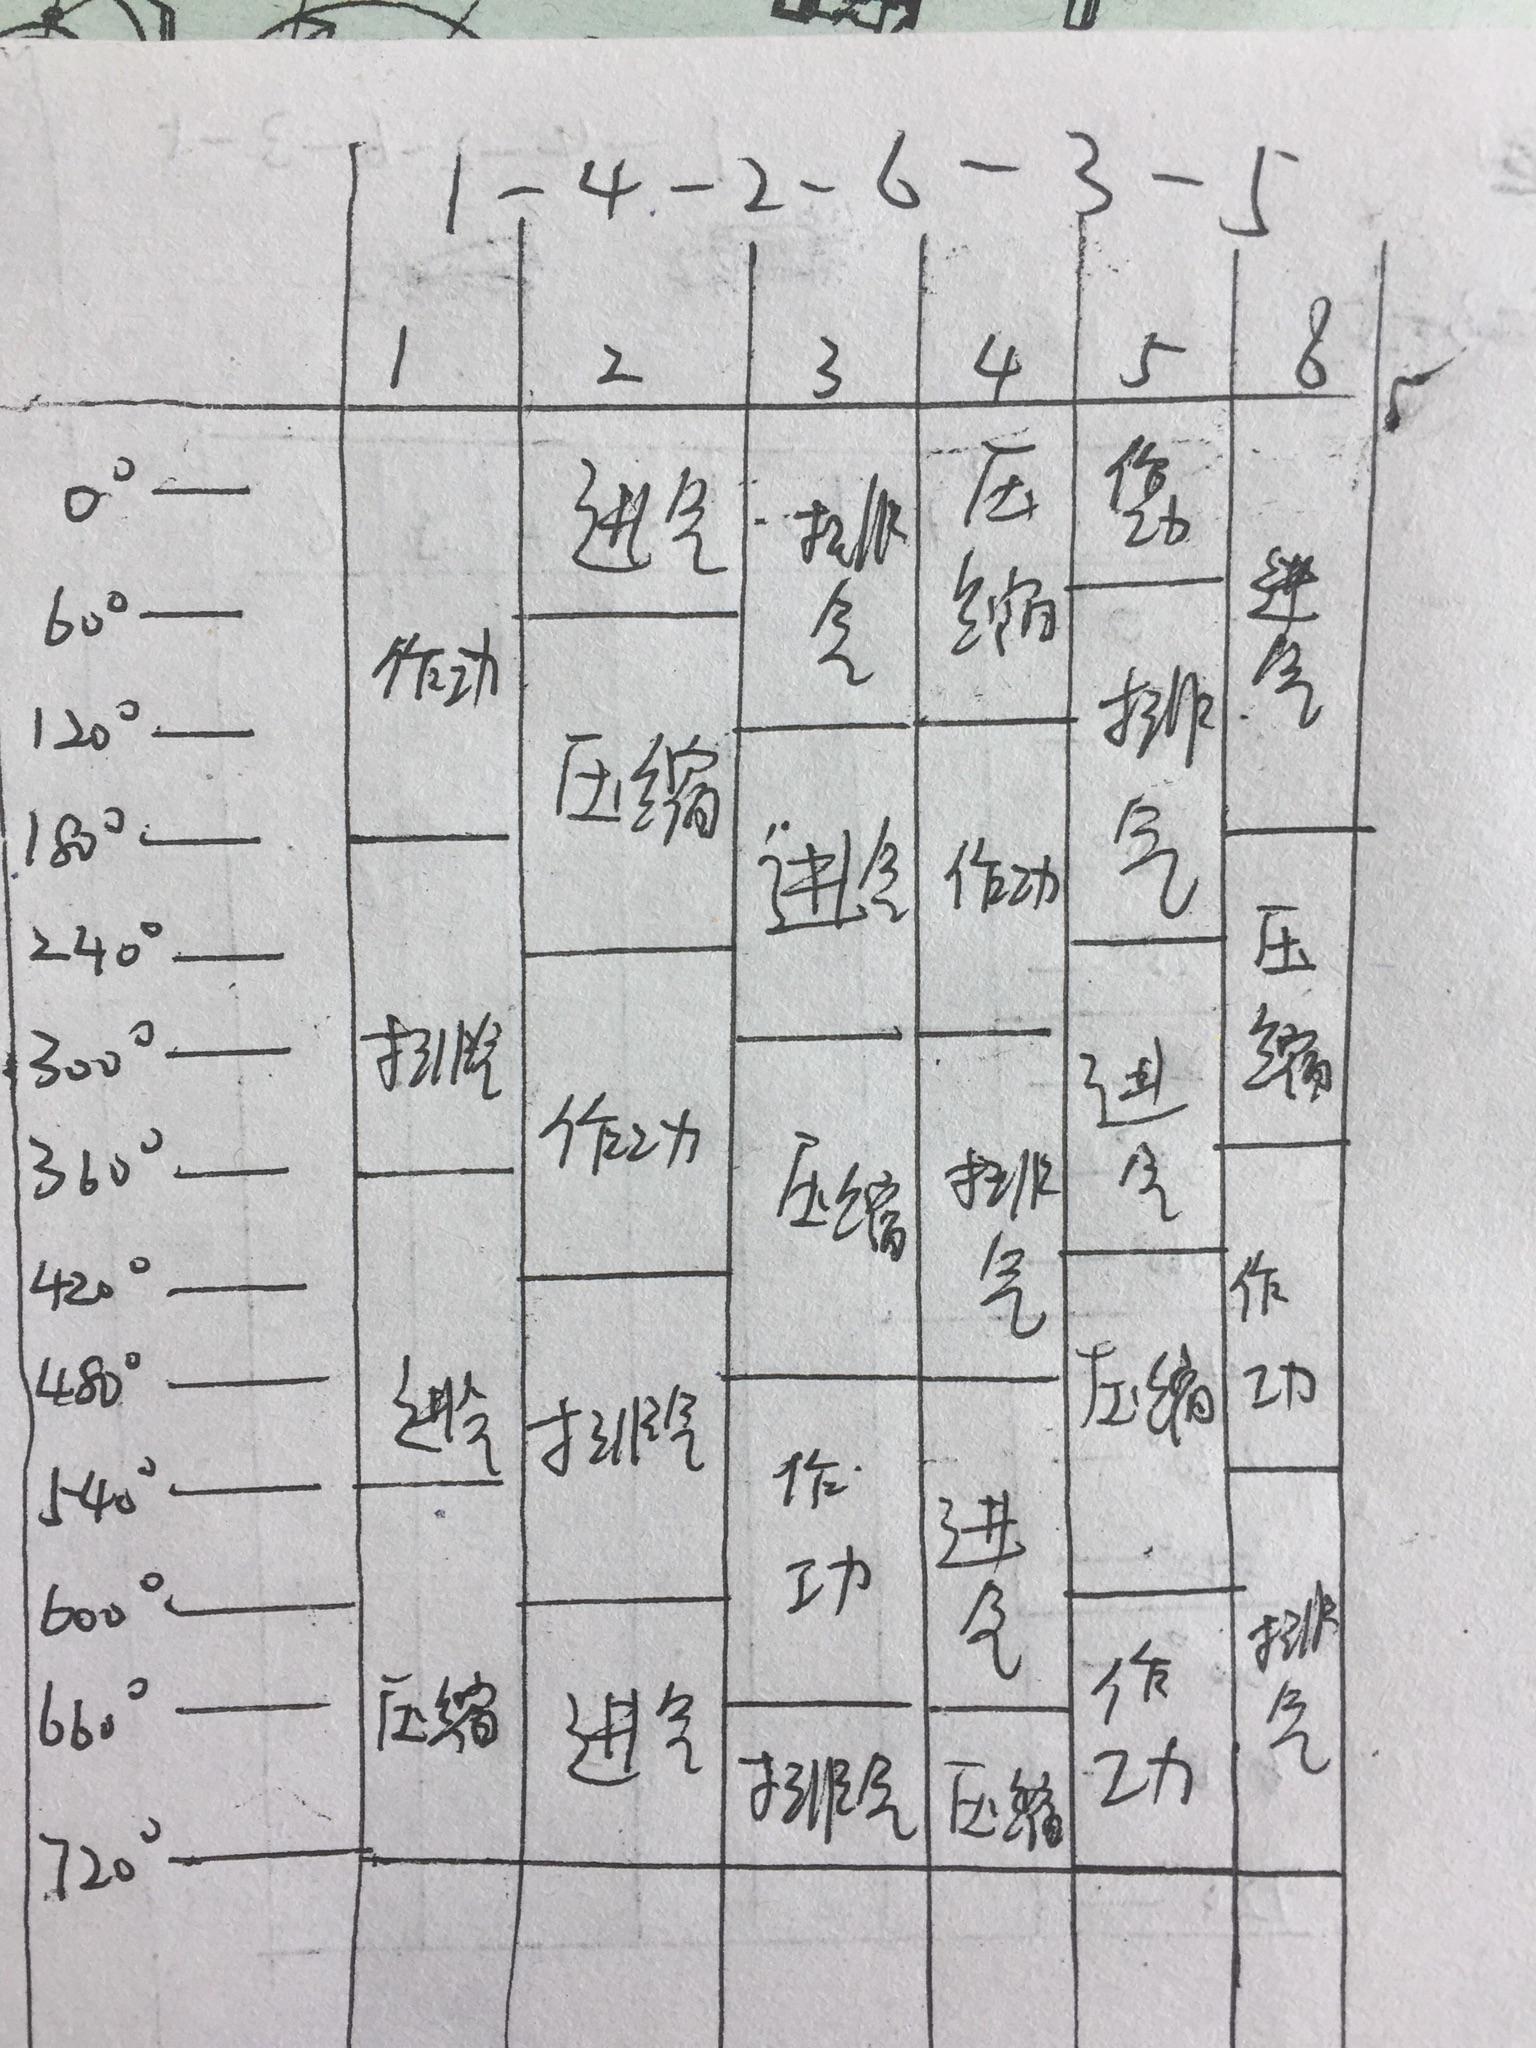 1-4-2-6-3-5
1 2 3 4 5 6
0° 进气 排气 压缩 作功 进气
60° 作功
120° 压缩 排气
180° 进气 作功
240° 压缩
300° 排气 进气
360° 作功 压缩 排气
420° 作功
480° 进气 排气 压缩
540° 作功 进气
600° 排气
660° 压缩 进气 作功
排气 压缩
720°